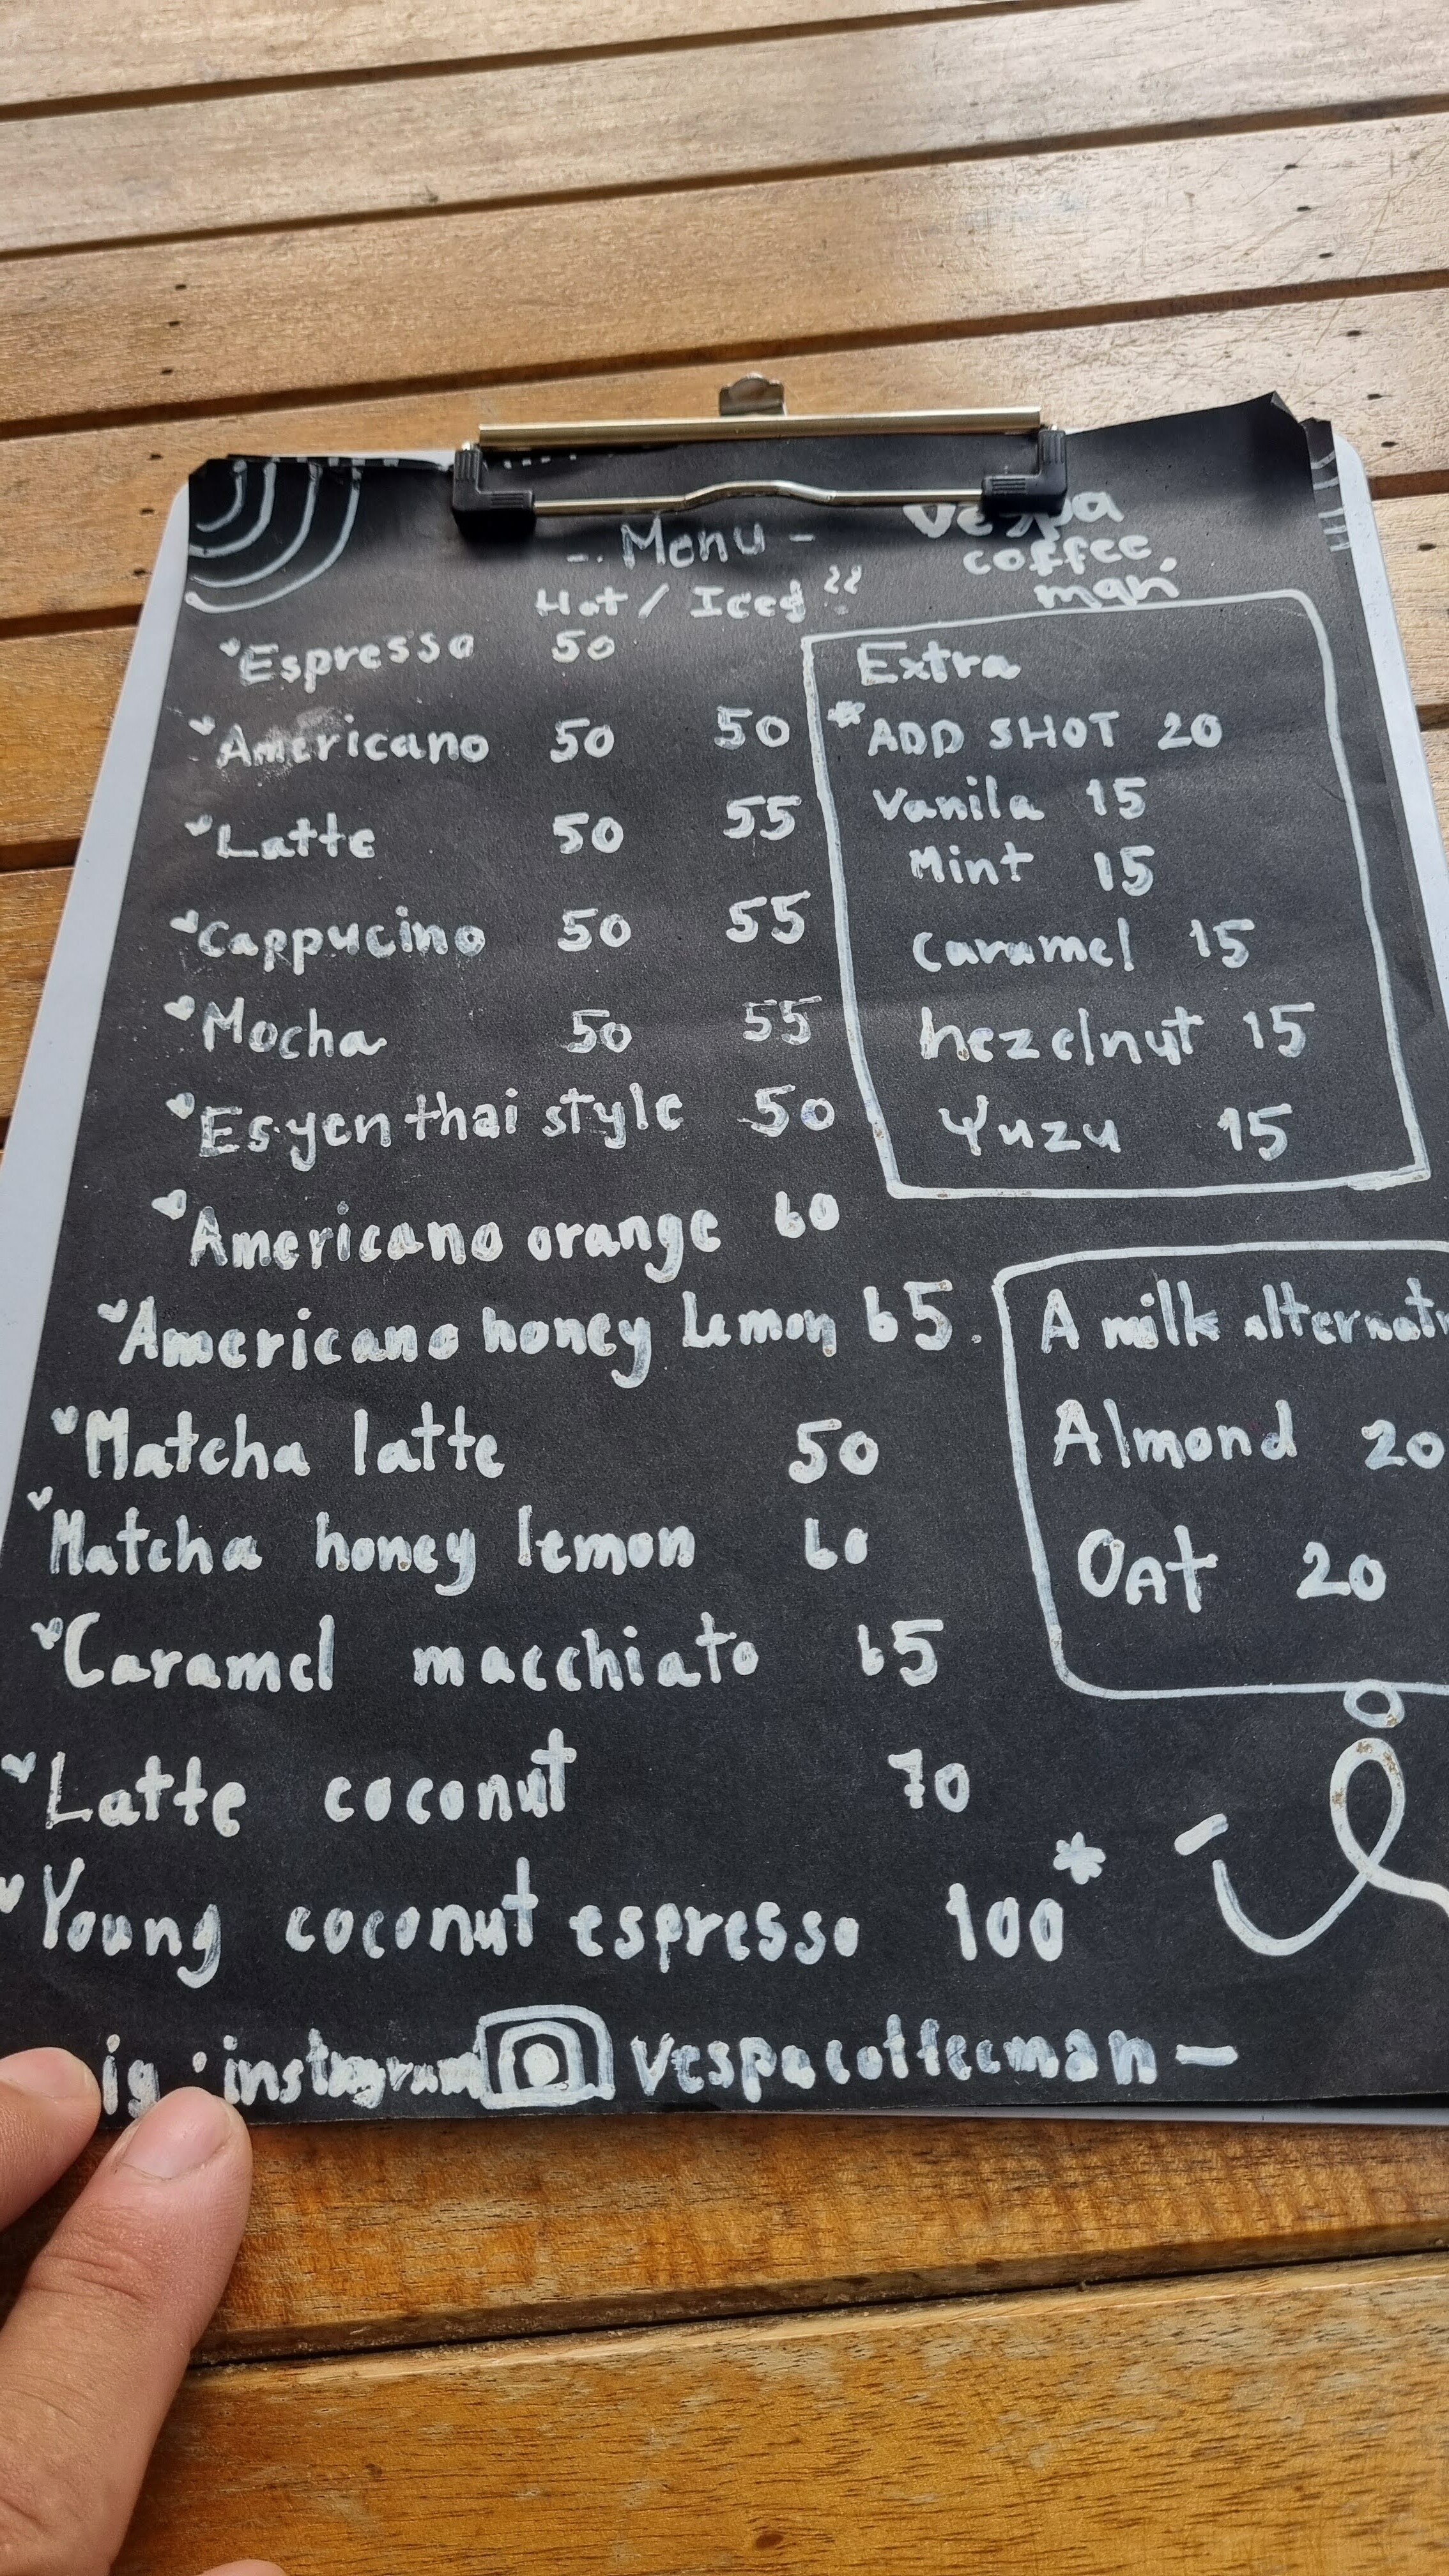 - Menu -
Vespa
coffee
man.
Hot / Iced
Espresso 50
Americano 50 50
Latte 50 55
Cappucino 50 55
Mocha 50 55
Es.yen thai style 50
Americano orange 60
Americano honey Lemon 65.
Matcha latte 50
Matcha honey lemon 60
Caramel macchiato 65
Latte coconut 70
Young coconut espresso 100*
Extra
*ADD SHOT 20
Vanila 15
Mint 15
Caramel 15
hezelnut 15
Yuzu 15
A milk alternativ
Almond 20
OAt 20
ig : instagram vespacoffeeman -